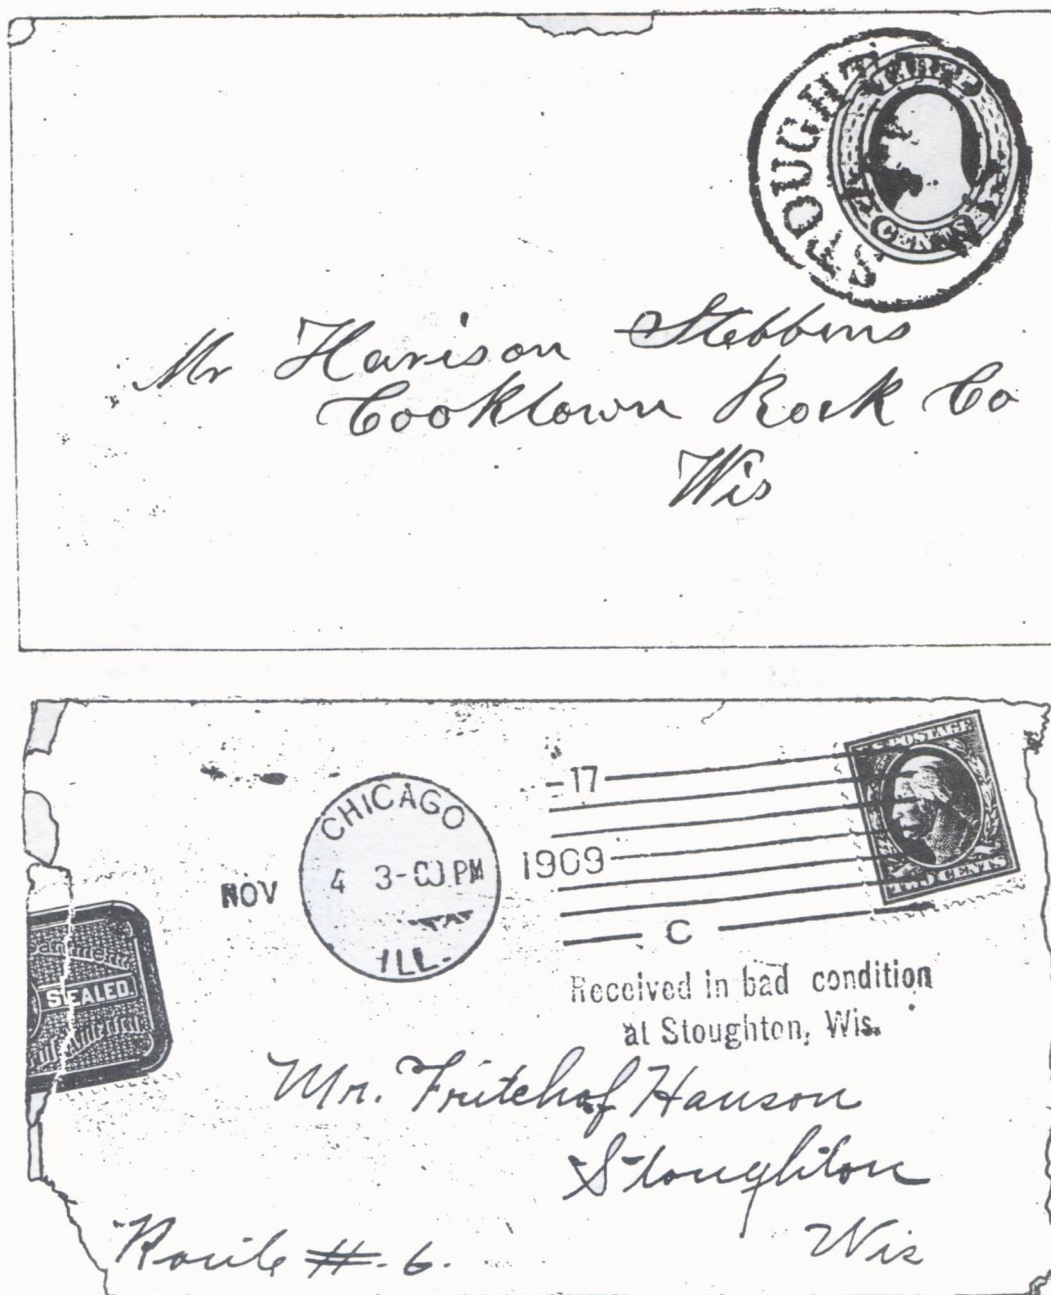 STOUGHT
THREE
CENTS
Mr Harison Stebbins
Cooktown Rock Co
Wis
17
POSTAGE
CHICAGO
NOV 4 3-00 PM 1909
ILL.
TWO CENTS
C
SEALED.
Received in bad condition
at Stoughton, Wis.
Mr. Fritchof Hanson
Stoughton
Wis
Route #. 6.